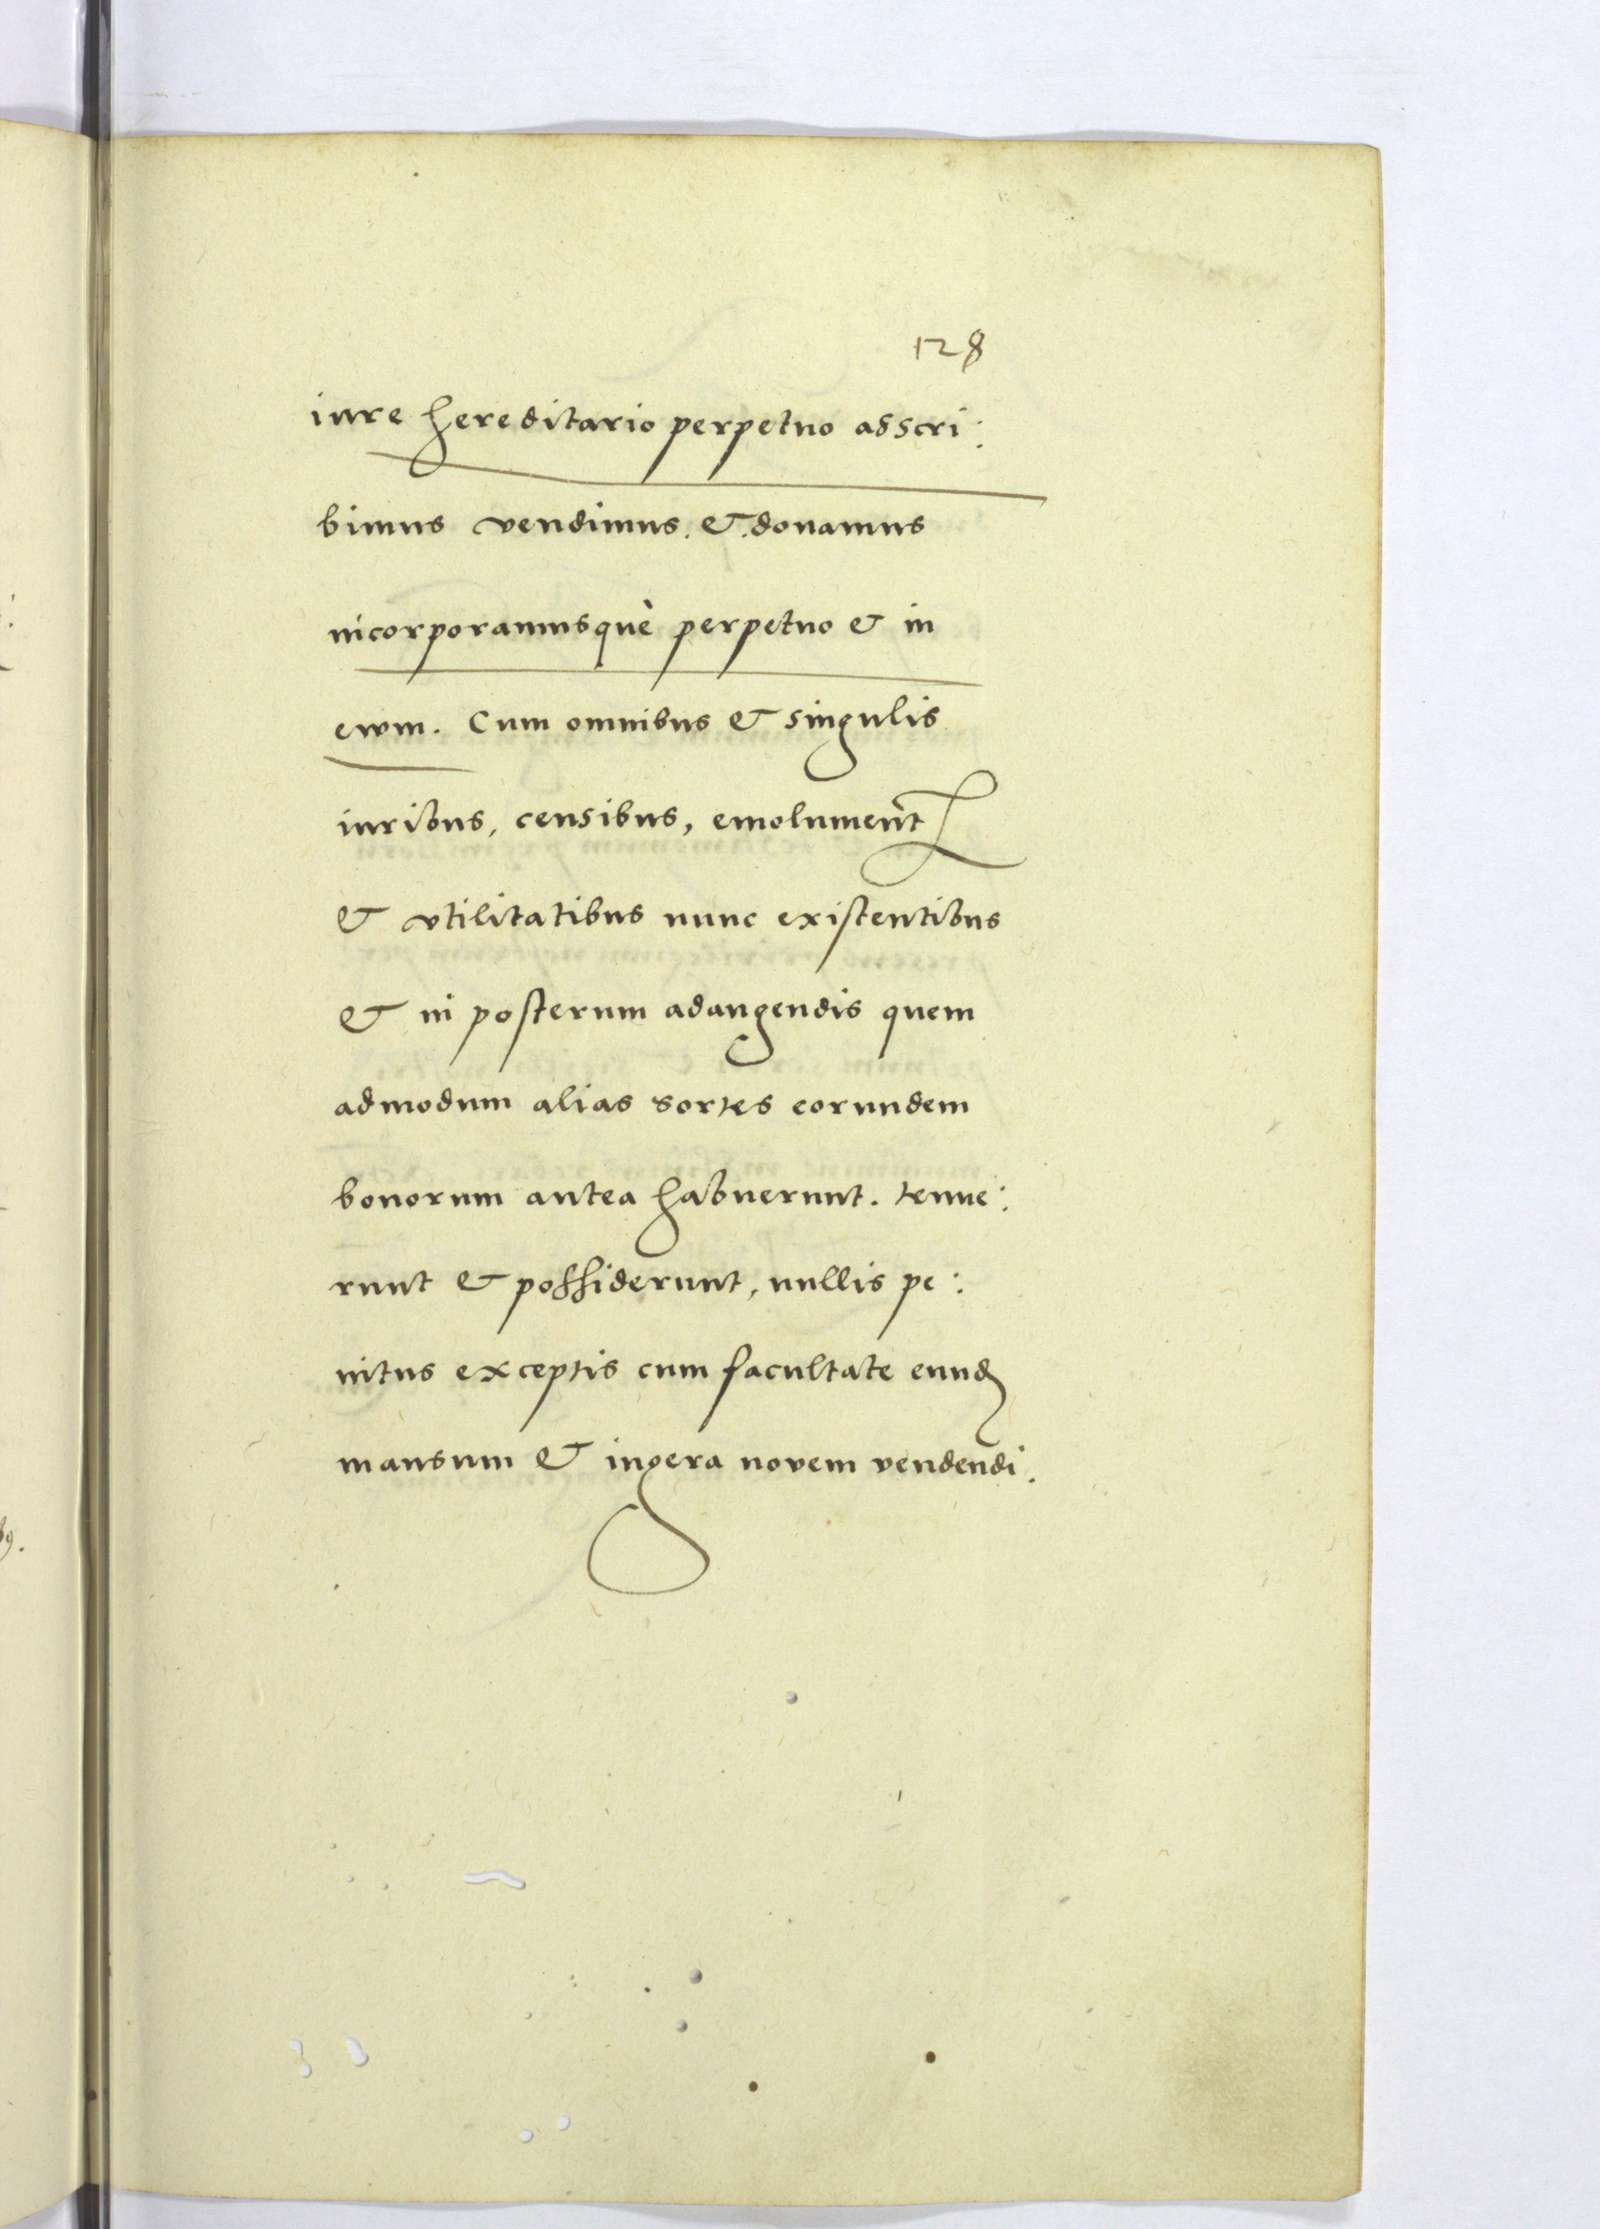 128
iure hereditario perpetuo adscri:
bimus vendimus. & donamus
incorporamusquè perpetuo & in
ewm. Cum omnibus & singulis
iuribus, censibus, emolument
& vtilitatibus nunc existentibus
& in posterum adaugendis quem
admodum alias sortes eorundem
bonorum antea habuerunt. tenue:
runt & possiderunt, nullis pe:
nitus exceptis cum facultate eund
mansum & iugera novem vendendi.